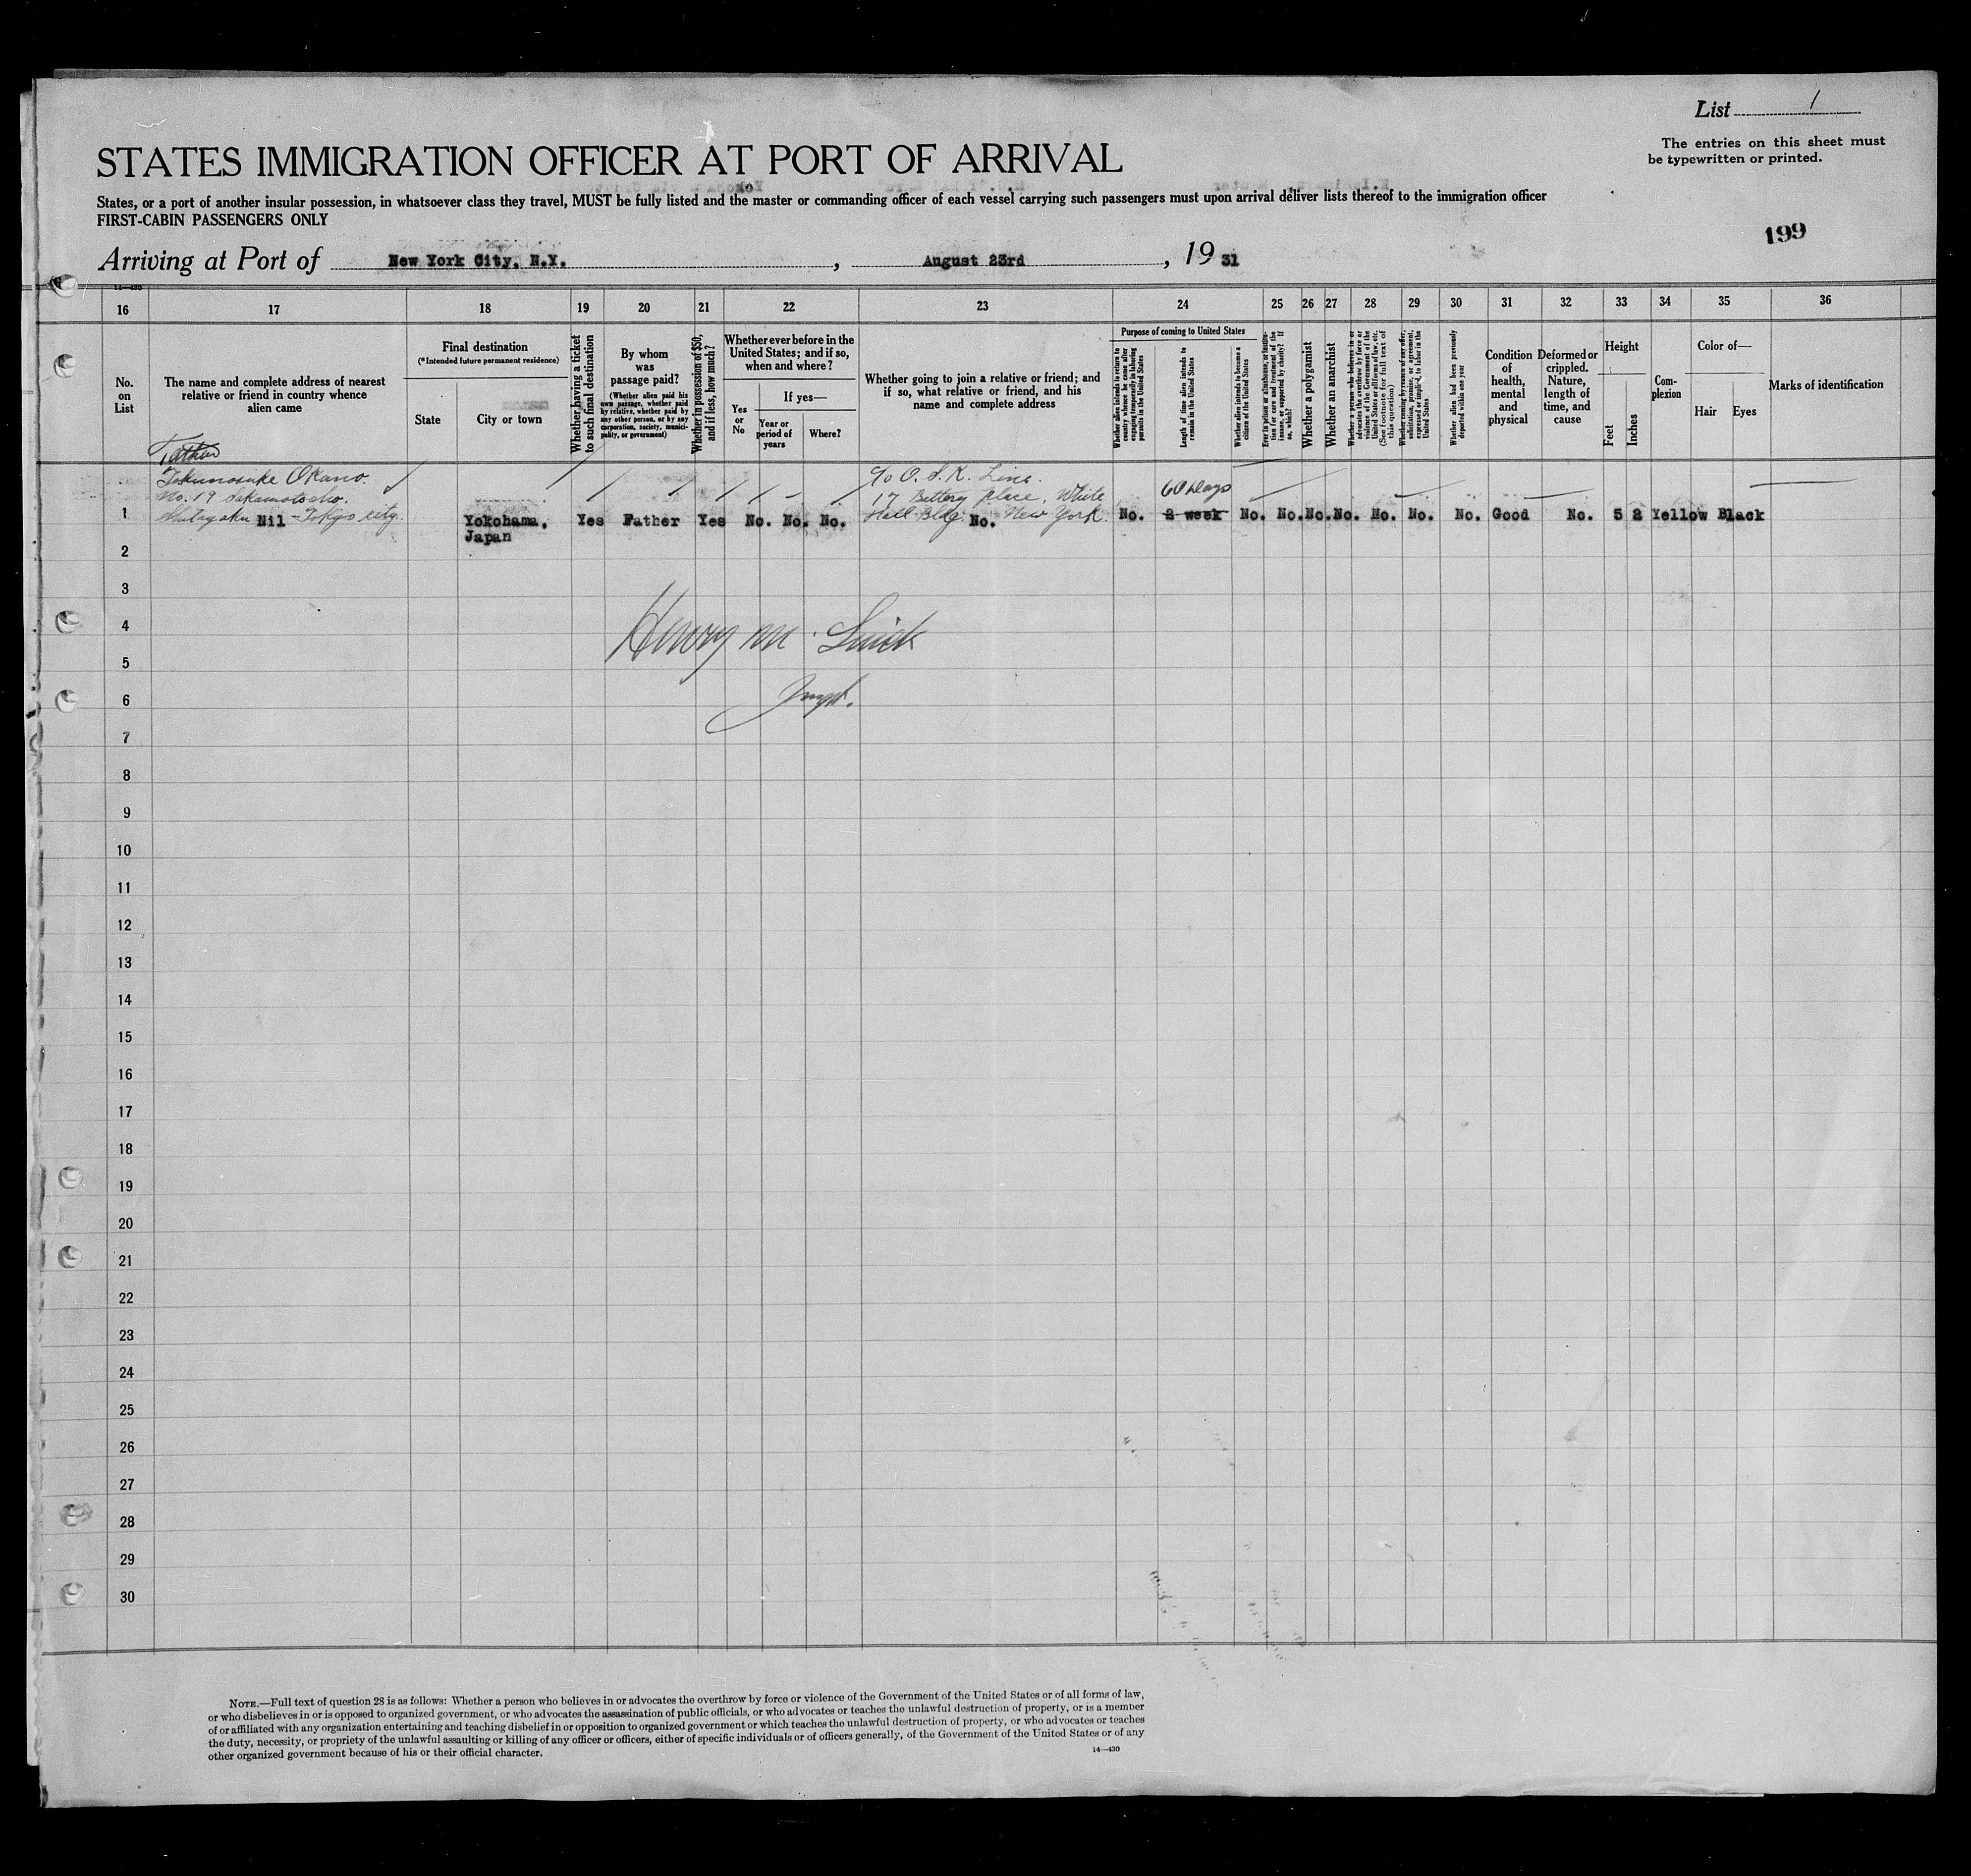 List 1
The entries on this sheet must
be typewritten or printed.
STATES IMMIGRATION OFFICER AT PORT OF ARRIVAL
States, or a port of another insular possession, in whatsoever class they travel, MUST be fully listed and the master or commanding officer of each vessel carrying such passengers must upon arrival deliver lists thereof to the immigration officer
FIRST-CABIN PASSENGERS ONLY
199
Arriving at Port of New York City, N.Y., August 23rd, 19 31
14—430
16 17 18 19 20 21 22 23 24 25 26 27 28 29 30 31 32 33 34 35 36
No.
on
List
The name and complete address of nearest
relative or friend in country whence
alien came
Final destination
(*Intended future permanent residence)
State
City or town
Whether having a ticket
to such final destination
By whom
was
passage paid?
(Whether alien paid his
own passage, whether paid
by relative, whether paid by
any other person, or by any
corporation, society, munici-
pality, or government)
Whether in possession of $50,
and if less, how much?
Whether ever before in the
United States; and if so,
when and where?
Yes
or
No
If yes—
Year or
period of
years
Where?
Whether going to join a relative or friend; and
if so, what relative or friend, and his
name and complete address
Purpose of coming to United States
Whether alien intends to return to
country whence he came after
engaging temporarily in laboring
pursuits in the United States
Length of time alien intends to
remain in the United States
Whether alien intends to become a
citizen of the United States
Ever in prison or almshouse, or institu-
tion for care and treatment of the
insane, or supported by charity? If
so, which?
Whether a polygamist
Whether an anarchist
Whether a person who believes in or
advocates the overthrow by force or
violence of the Government of the
United States or all forms of law, etc.
(See footnote for full text of
this question)
Whether coming by reason of any offer,
solicitation, promise, or agreement,
expressed or implied, to labor in the
United States
Whether alien had been previously
deported within one year
Condition
of
health,
mental
and
physical
Deformed or
crippled.
Nature,
length of
time, and
cause
Height
Feet
Inches
Com-
plexion
Color of—
Hair
Eyes
Marks of identification
Father
Tokunosuke Okano
No. 19 Sakamotocho,
Shitayaku Nil - Tokyo city.
c/o O. S. K. Line.
17 Battery place, White
Hall Bldg. No. New York.
60 days
1 Yokohama, Yes Father Yes No. No. No. No. 2 week No. No. No. No. No. No. No. Good No. 5 2 Yellow Black
Japan
2
3
4
5
6
Henry M.
Insp.
7
8
9
10
11
12
13
14
15
16
17
18
19
20
21
22
23
24
25
26
27
28
29
30
NOTE.—Full text of question 28 is as follows: Whether a person who believes in or advocates the overthrow by force or violence of the Government of the United States or of all forms of law,
or who disbelieves in or is opposed to organized government, or who advocates the assassination of public officials, or who advocates or teaches the unlawful destruction of property, or is a member
of or affiliated with any organization entertaining and teaching disbelief in or opposition to organized government or which teaches the unlawful destruction of property, or who advocates or teaches
the duty, necessity, or propriety of the unlawful assaulting or killing of any officer or officers, either of specific individuals or of officers generally, of the Government of the United States or of any
other organized government because of his or their official character.
14—430